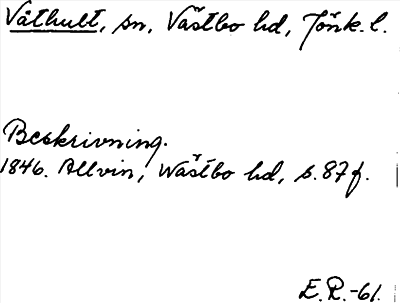 Våthult, sn, Västbo hd, Jönk. l.
Beskrivning.
1846. Allvin, Wästbo hd, s. 87 f.
E.R.-61.